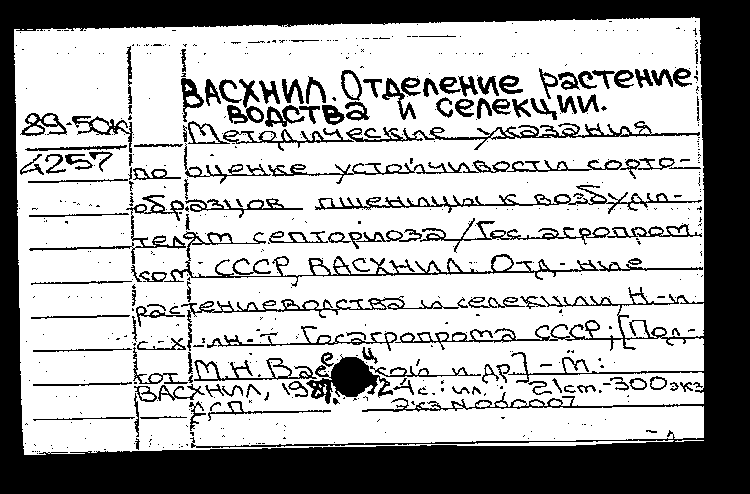 ВАСХНИЛ. Отделение растение
водства и селекции.
89-50к
Методические указания
4257
по оценке устойчивости сорто-
образцов пшеницы к возбуди-
телям септориоза / Гос. агропром.
ком. СССР, ВАСХНИЛ. Отд-ние
растениеводства и селекции, Н.-и.
с.-х. ин-т Госагропрома СССР; [Под-
гот. М.Н. и др.] - М.:
ВАСХНИЛ, 24 с.: ил.; 21 см. - 300 экз
ДСП. Экз N 000007